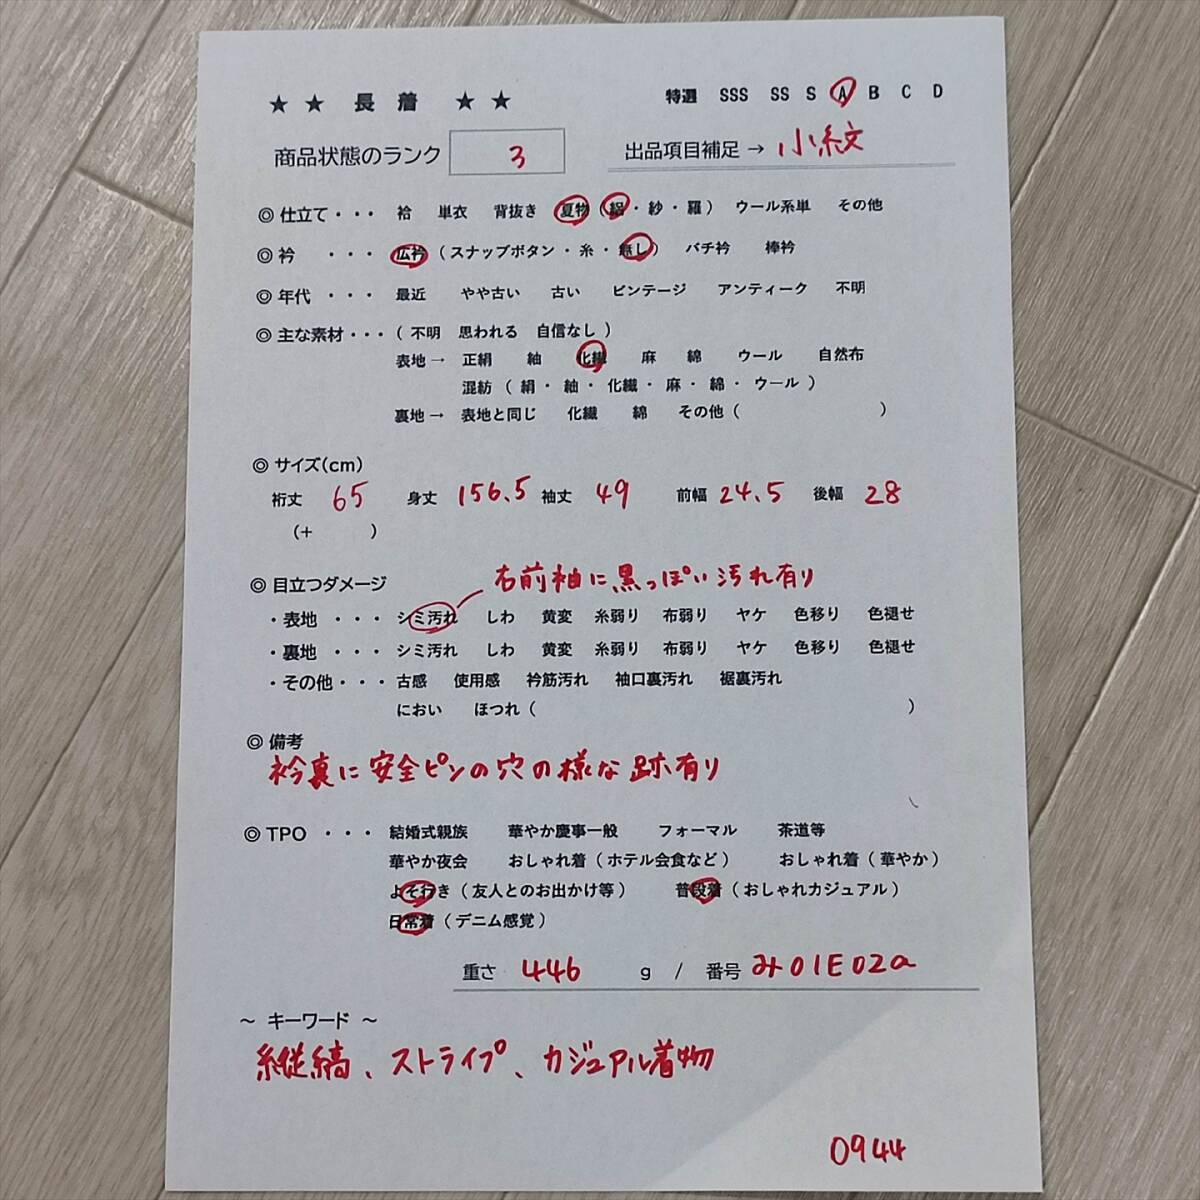 ★ ★ 長 着 ★ ★
特選 SSS SS S A B C D
商品状態のランク 3
出品項目補足 → 小紋
◎ 仕立て・・・ 袷 単衣 背抜き 夏物 ( 絽・紗・羅 ) ウール系単 その他
◎ 衿 ・・・ 広衿 ( スナップボタン・糸・無し ) バチ衿 棒衿
◎ 年代 ・・・ 最近 やや古い 古い ビンテージ アンティーク 不明
◎ 主な素材・・・ ( 不明 思われる 自信なし )
表地→ 正絹 紬 化繊 麻 綿 ウール 自然布
混紡 ( 絹・紬・化繊・麻・綿・ウール )
裏地→ 表地と同じ 化繊 綿 その他 ( )
◎ サイズ(cm)
裄丈 65 身丈 156.5 袖丈 49 前幅 24.5 後幅 28
(+ )
◎ 目立つダメージ 右前袖に黒っぽい汚れ有り
・表地 ・・・ シミ汚れ しわ 黄変 糸弱り 布弱り ヤケ 色移り 色褪せ
・裏地 ・・・ シミ汚れ しわ 黄変 糸弱り 布弱り ヤケ 色移り 色褪せ
・その他・・・ 古感 使用感 衿筋汚れ 袖口裏汚れ 裾裏汚れ
におい ほつれ ( )
◎ 備考
衿裏に安全ピンの穴の様な跡有り
◎ TPO ・・・ 結婚式親族 華やか慶事一般 フォーマル 茶道等
華やか夜会 おしゃれ着 ( ホテル会食など ) おしゃれ着 ( 華やか )
よそ行き ( 友人とのお出かけ等 ) 普段着 ( おしゃれカジュアル )
日常着 ( デニム感覚 )
重さ 446 g / 番号 み01E02a
～ キーワード ～
縦縞、ストライプ、カジュアル着物
0944